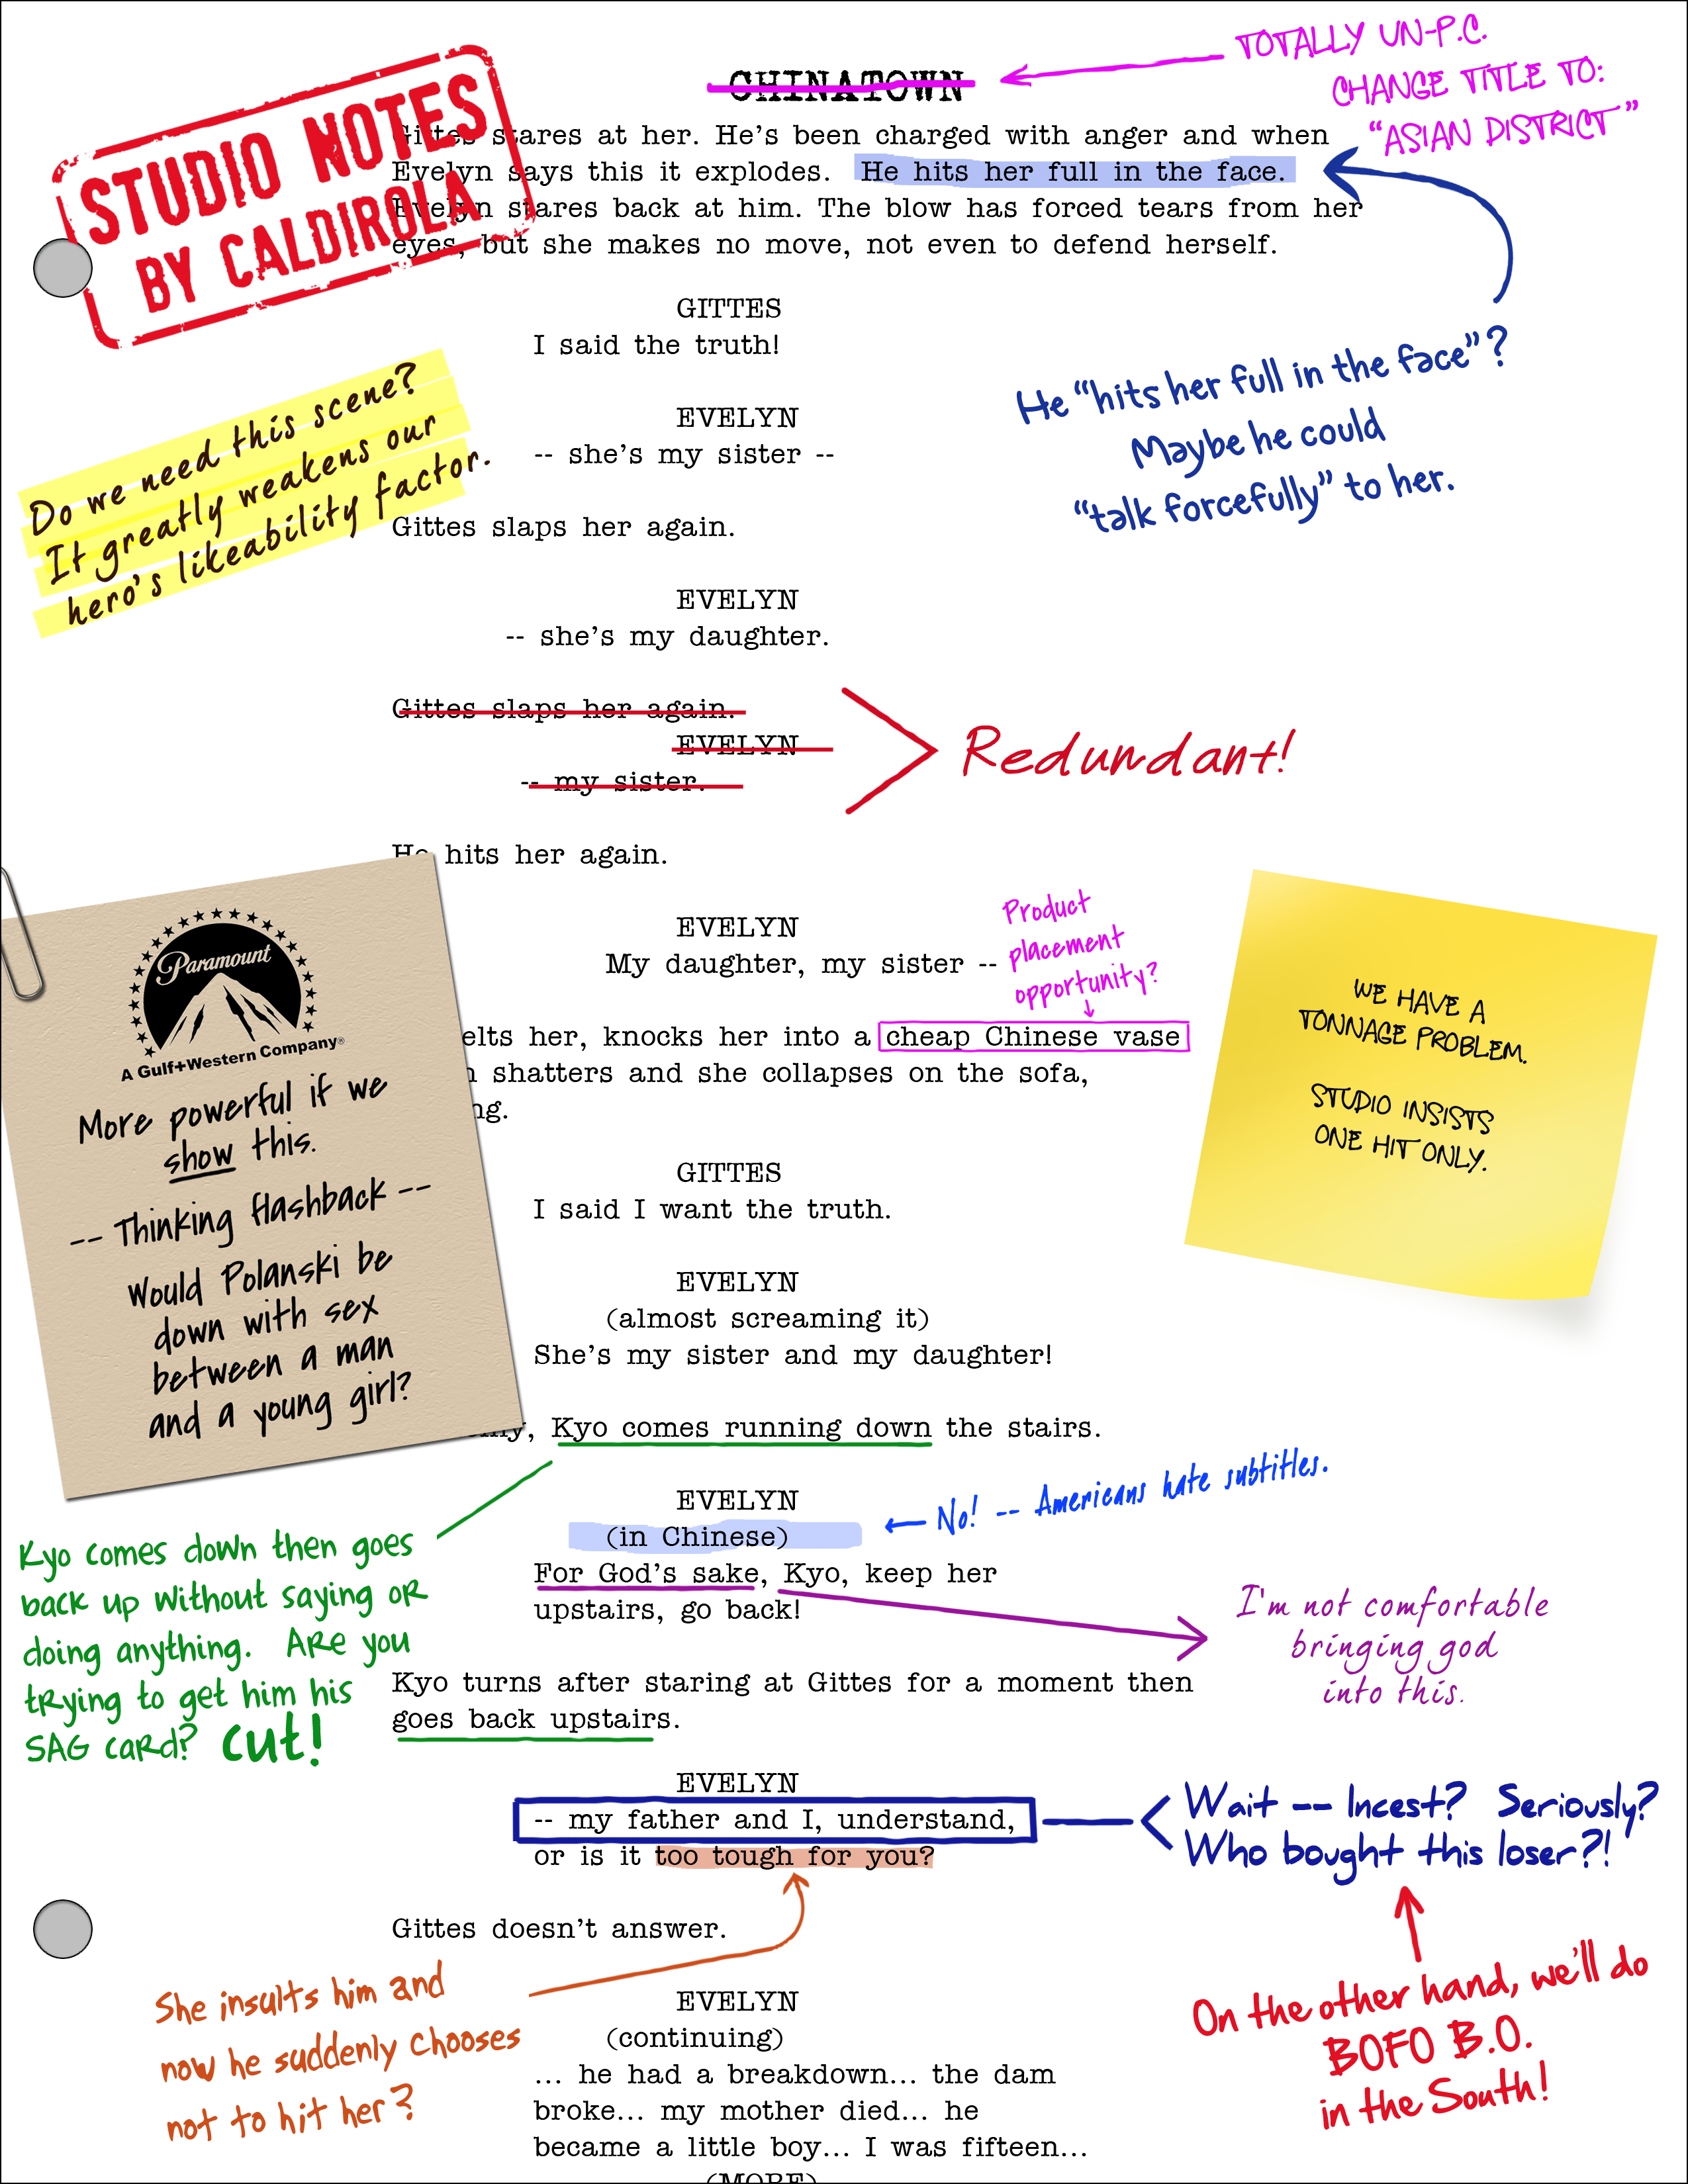 CHINATOWN
TOTALLY UN-P.C.
CHANGE TITLE TO:
“ASIAN DISTRICT”
STUDIO NOTES
BY CALDIROLA
Gittes stares at her. He’s been charged with anger and when
Evelyn says this it explodes. He hits her full in the face.
Evelyn stares back at him. The blow has forced tears from her
eyes, but she makes no move, not even to defend herself.
GITTES
I said the truth!
He “hits her full in the face”?
Maybe he could
“talk forcefully” to her.
Do we need this scene?
It greatly weakens our
hero’s likeability factor.
EVELYN
-- she’s my sister --
Gittes slaps her again.
EVELYN
-- she’s my daughter.
Gittes slaps her again.
EVELYN
-- my sister.
Redundant!
He hits her again.
EVELYN
My daughter, my sister --
Product
placement
opportunity?
elts her, knocks her into a cheap Chinese vase
shatters and she collapses on the sofa,
ng.
WE HAVE A
TONNAGE PROBLEM.
STUDIO INSISTS
ONE HIT ONLY.
Paramount
A Gulf+Western Company®
More powerful if we
show this.
-- Thinking flashback --
Would Polanski be
down with sex
between a man
and a young girl?
GITTES
I said I want the truth.
EVELYN
(almost screaming it)
She’s my sister and my daughter!
Kyo comes running down the stairs.
EVELYN
(in Chinese)
No! -- Americans hate subtitles.
For God’s sake, Kyo, keep her
upstairs, go back!
I'm not comfortable
bringing god
into this.
Kyo comes down then goes
back up without saying or
doing anything. Are you
trying to get him his
SAG card? cut!
Kyo turns after staring at Gittes for a moment then
goes back upstairs.
EVELYN
-- my father and I, understand,
or is it too tough for you?
Wait -- Incest? Seriously?
Who bought this loser?!
On the other hand, we’ll do
BOFO B.O.
in the South!
Gittes doesn’t answer.
She insults him and
now he suddenly chooses
not to hit her?
EVELYN
(continuing)
... he had a breakdown... the dam
broke... my mother died... he
became a little boy... I was fifteen...
(MORE)